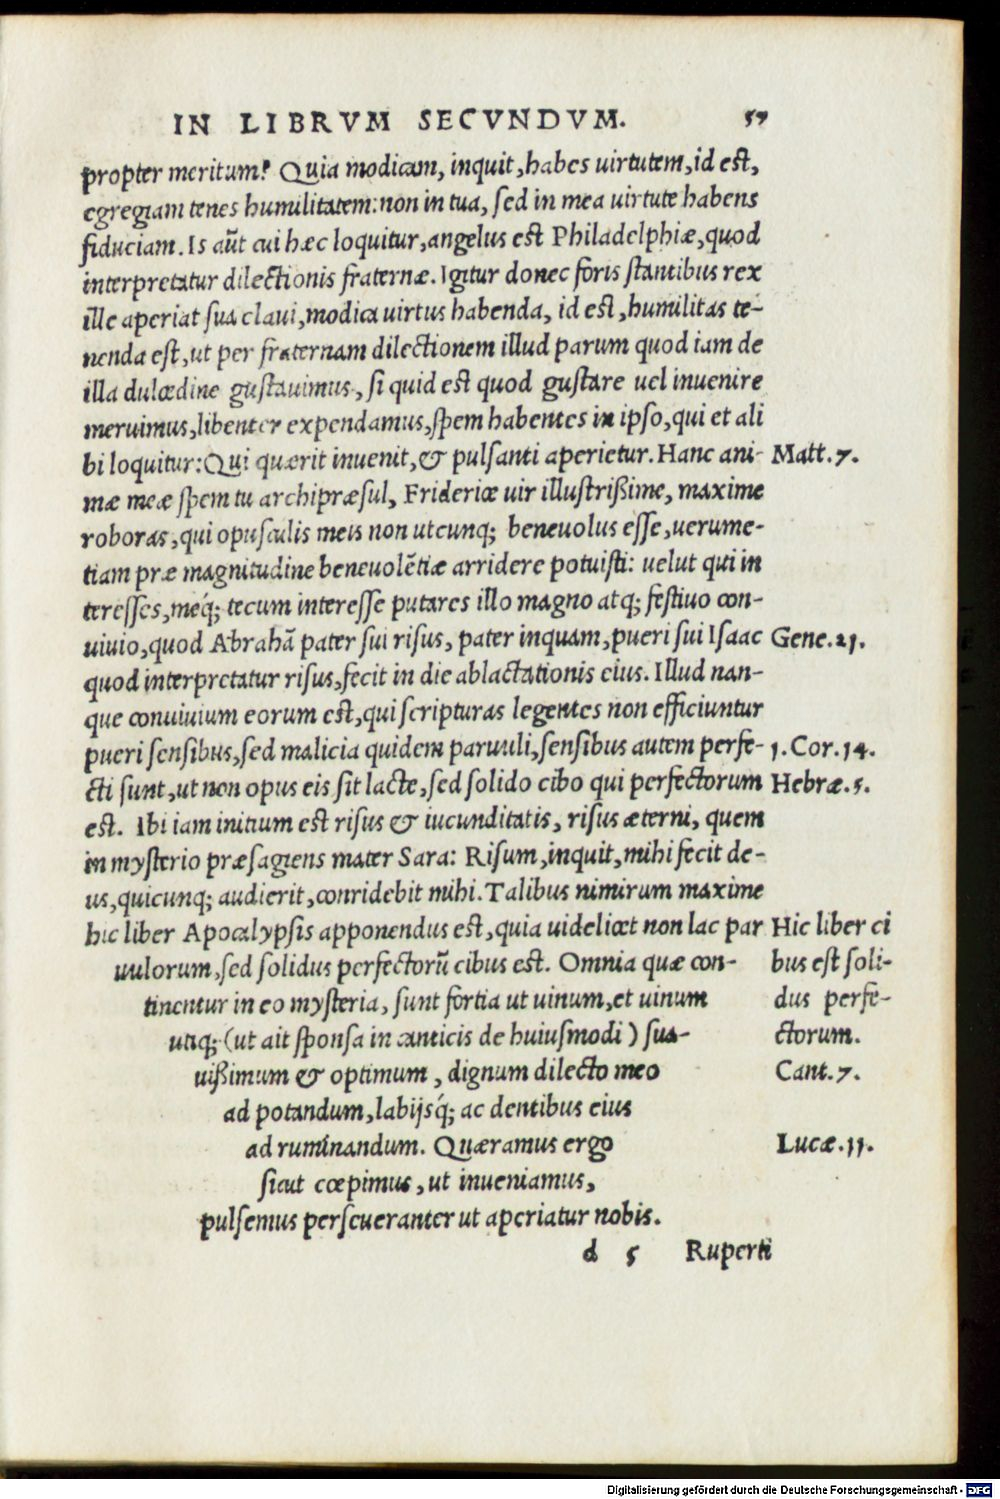 IN LIBRVM SECVNDVM. 57
propter meritum? Quia modicam, inquit, habes uirtutem, id est,
egregiam tenes humilitatem: non in tua, sed in mea uirtute habens
fiduciam. Is aũt cui hæc loquitur, angelus est Philadelphiæ, quod
interpretatur dilectionis fraternæ. Igitur donec foris stantibus rex
ille aperiat sua claui, modica uirtus habenda, id est, humilitas te-
nenda est, ut per fraternam dilectionem illud parum quod iam de
illa dulcedine gustauimus, si quid est quod gustare uel inuenire
meruimus, libenter expendamus, spem habentes in ipso, qui et ali
bi loquitur: Qui quærit inuenit, & pulsanti aperietur. Hanc ani- Matt. 7.
mæ meæ spem tu archipræsul, Friderice uir illustrißime, maxime
roboras, qui opusculis meis non utcunq; beneuolus esse, uerume-
tiam præ magnitudine beneuolẽtiæ arridere potuisti: uelut qui in
teresses, meq́; tecum interesse putares illo magno atq; festiuo con-
uiuio, quod Abrahã pater sui risus, pater inquam, pueri sui Isaac Gene. 21.
quod interpretatur risus, fecit in die ablactationis eius. Illud nan-
que conuiuium eorum est, qui scripturas legentes non efficiuntur
pueri sensibus, sed malicia quidem paruuli, sensibus autem perfe- 1. Cor. 14.
cti sunt, ut non opus eis sit lacte, sed solido cibo qui perfectorum Hebræ. 5.
est. Ibi iam initium est risus & iucunditatis, risus æterni, quem
in mysterio præsagiens mater Sara: Risum, inquit, mihi fecit de-
us, quicunq; audierit, conridebit mihi. Talibus nimirum maxime
hic liber Apocalypsis apponendus est, quia uidelicet non lac par Hic liber ci
uulorum, sed solidus perfectorũ cibus est. Omnia quæ con- bus est soli-
tinentur in eo mysteria, sunt fortia ut uinum, et uinum dus perfe-
utiq; (ut ait sponsa in canticis de huiusmodi) sua- ctorum.
uißimum & optimum, dignum dilecto meo Cant. 7.
ad potandum, labijsq́; ac dentibus eius
ad ruminandum. Quæramus ergo Lucæ. 11.
sicut cœpimus, ut inueniamus,
pulsemus perseueranter ut aperiatur nobis.
d 5 Ruperti
Digitalisierung gefördert durch die Deutsche Forschungsgemeinschaft - DFG